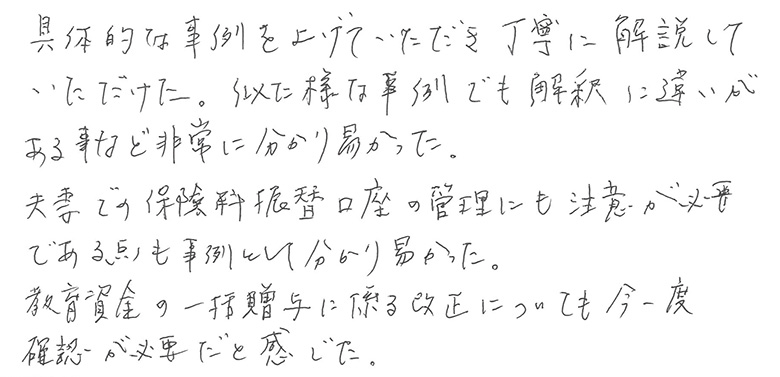 具体的な事例を上げていただき丁寧に解説して
いただけた。似た様な事例でも解釈に違いが
ある事など非常に分かり易かった。
夫妻での保険料振替口座の管理にも注意が必要
である点も事例として分かり易かった。
教育資金の一括贈与に係る改正についても今一度
確認が必要だと感じた。